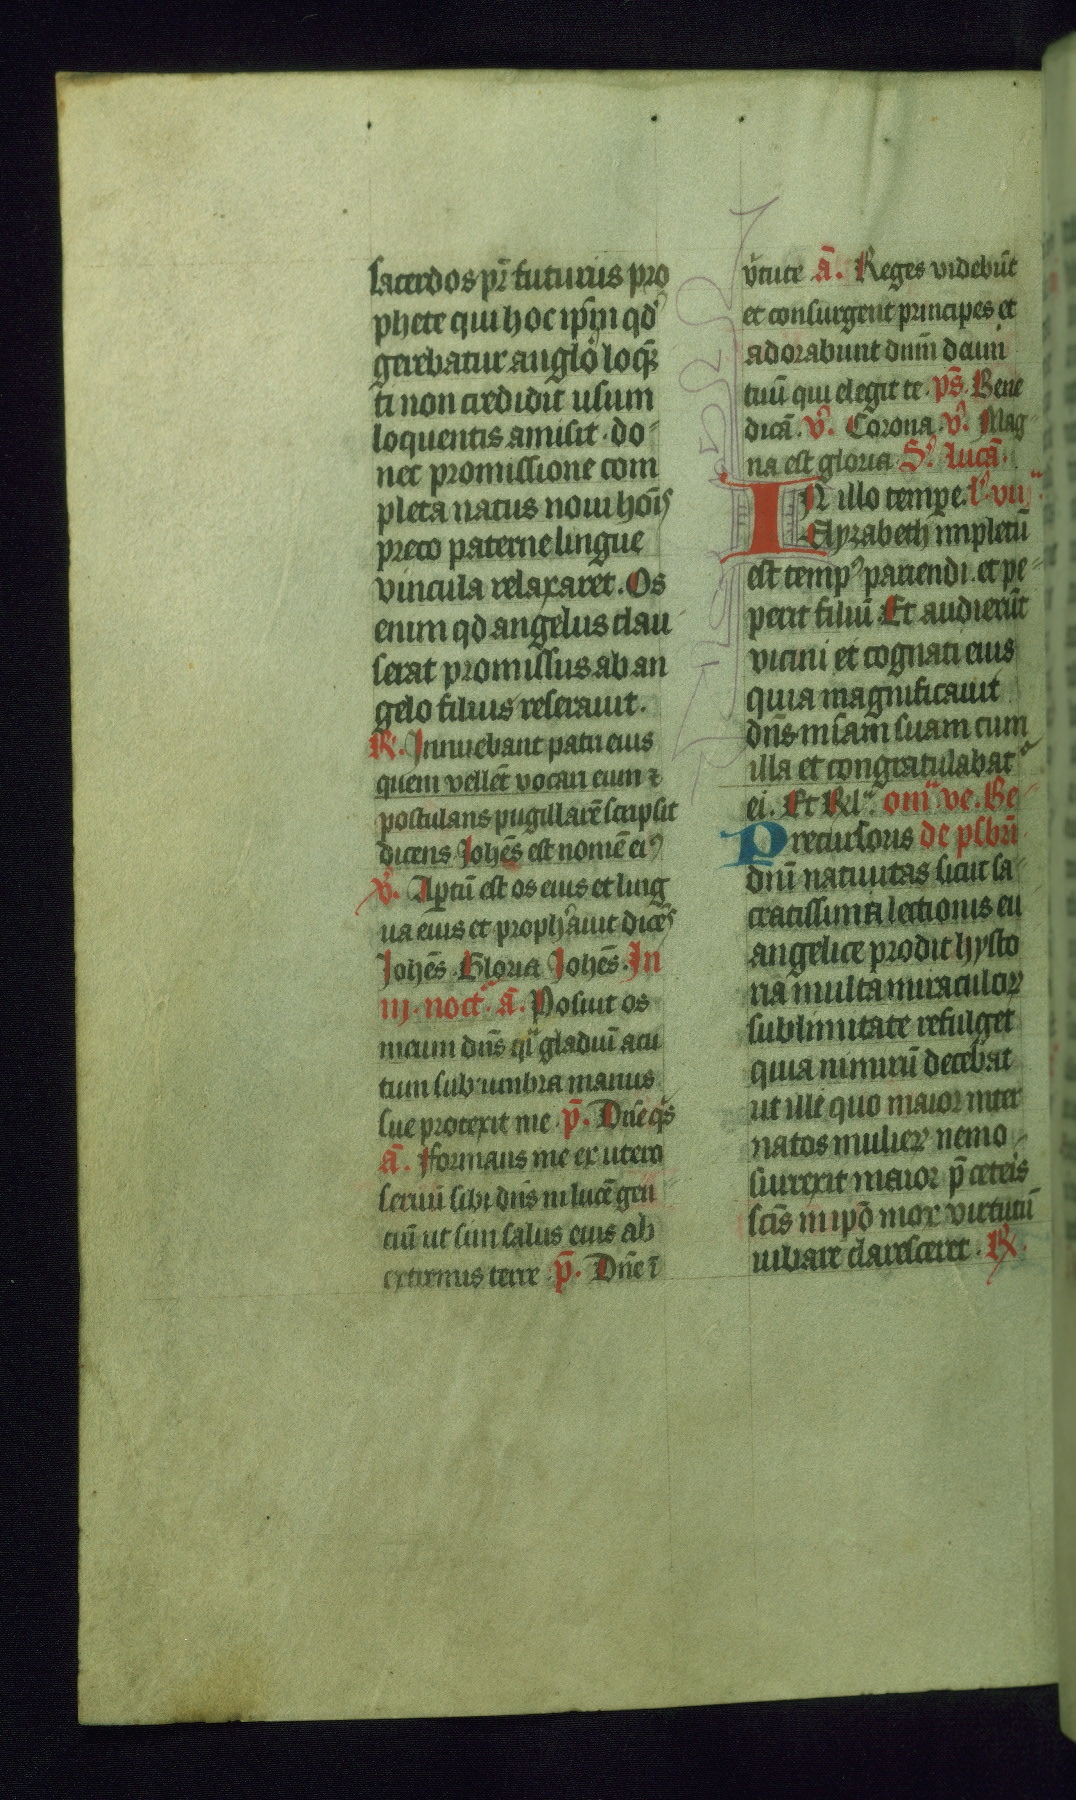 sacerdos pr̄ futurus pro
phete qui hoc ipm̄ qd'
gerebatur anglo loq̄n
ti non credidit usum
loquentis amisit. do-
nec promissione com
pleta natus noui hoīs
preco paterne lingue
vincula relaxaret. Os
enim qd angelus clau
serat promissus ab an
gelo filius reserauit.
R. Innuebant patri eius
quem vellēt vocari eum ⁊
postulans pugillarē scripsit
dicens Johēs est nomē ei⁹
V. Aptū est os eius et ling
ua eius et prophauit dicēs
Johēs. Gloria Johēs. In
iij. noct. ā. Posuit os
meum dn̄s qi gladiū acu
tum sub umbra manus
sue protexit me. p̄. Dn̄e qs
ā. Formans me ex utero
seruū sibi dn̄s in lucē gen
ciū ut sim salus eius ab
extremis terre. p̄. Dn̄e ī
v̄tute ā. Reges videbūt
et consurgent principes et
adorabunt dnm̄ deum
tuū qui elegit te. ps̄. Bene
dicā. V. Corona. V. Mag-
na est gloria. S. lucā.
IN illo tempe. l. vij.
Elyzabeth impletū
est temp⁹ pariendi. et pe-
perit filiū. Et audierūt
vicini et cognati eius
quia magnificauit
dn̄s mīam suam cum
illa et congratulabat
ei. Et Rl. om. ve. Be
Precursoris de psbri
dnū natiuitas sicut sa
cratissima lectionis eu
angelice prodit hysto
ria multa miraculoꝝ
sublimitate refulget
quia nimirū decebat
ut ille quo maior inter
natos mulieꝝ nemo
surrexit maior p̄ ceteris
sc̄is in ipō mox virtutū
iubare claresceret. R.